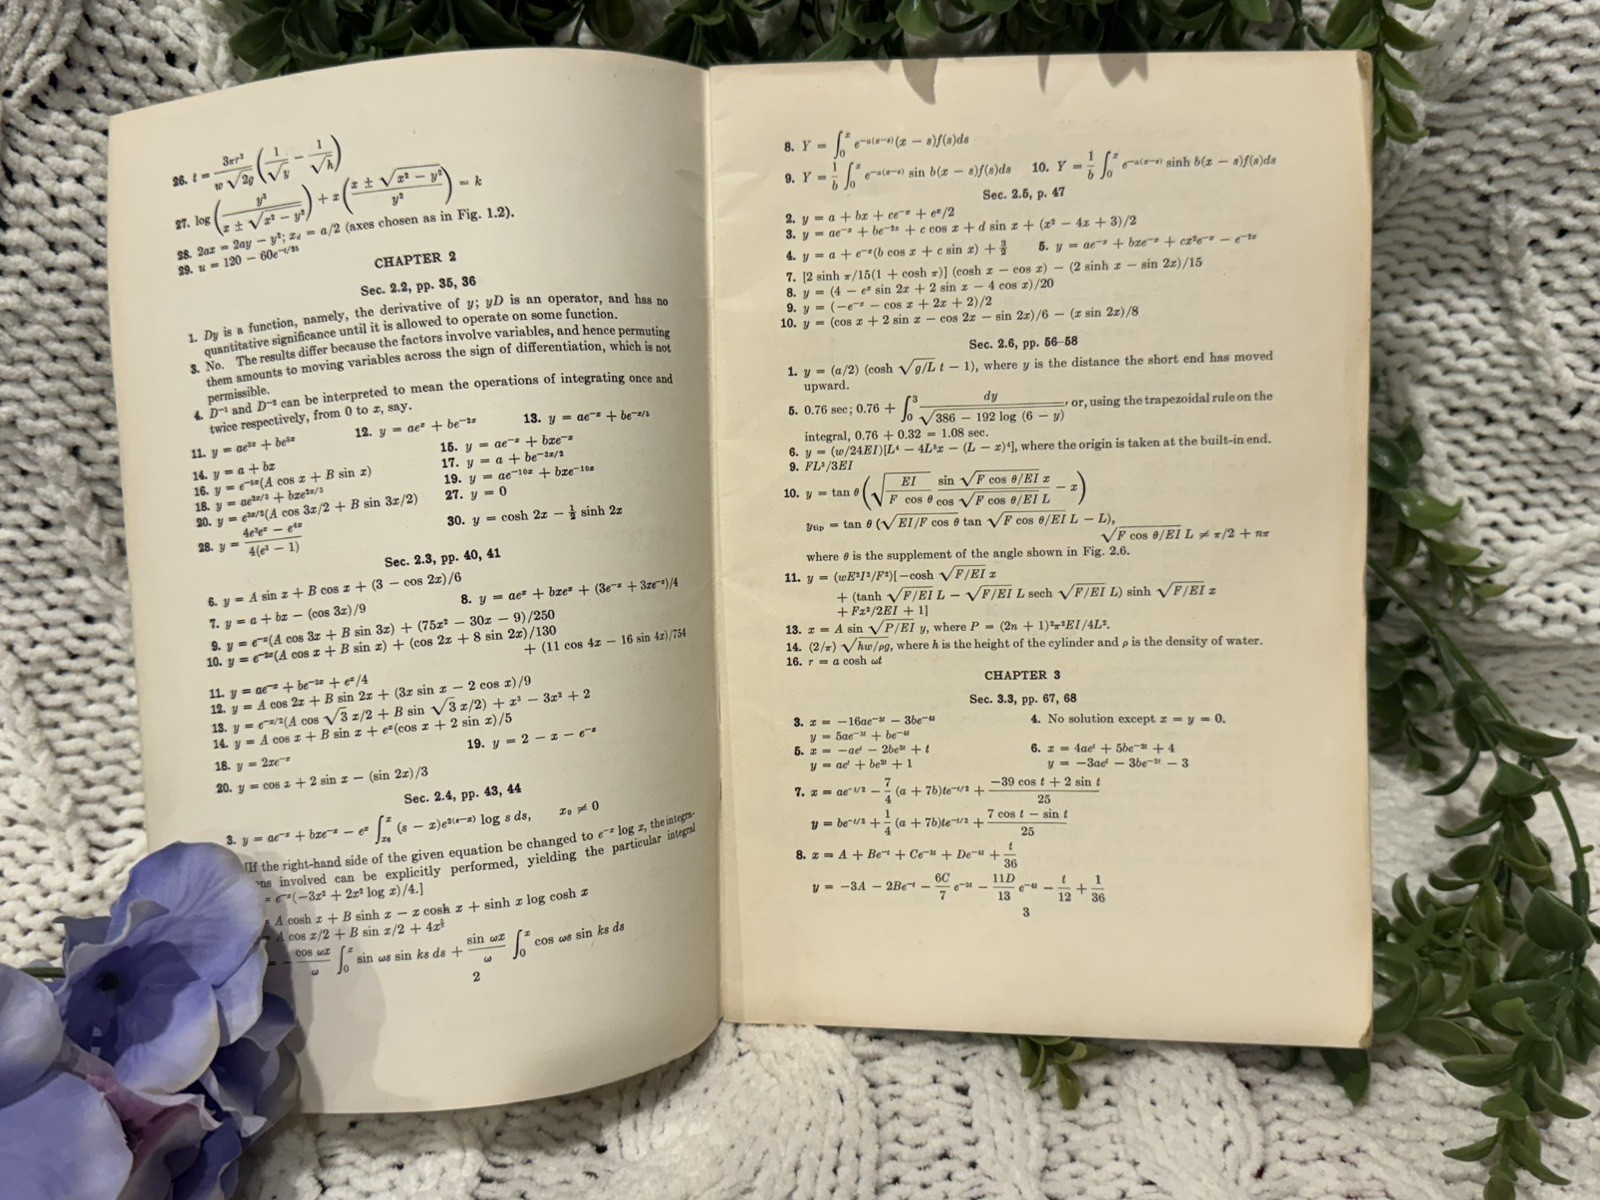 26. t = 3πr²/(w √2g) (1/√y − 1/√h)
27. log (y²/(x ± √(x² − y²))) + x ((x ± √(x² − y²))/y²) = k
28. 2ax = 2ay − y²; x_d = a/2 (axes chosen as in Fig. 1.2).
29. u = 120 − 60e^(−t/25)
CHAPTER 2
Sec. 2.2, pp. 35, 36
1. Dy is a function, namely, the derivative of y; yD is an operator, and has no
quantitative significance until it is allowed to operate on some function.
3. No. The results differ because the factors involve variables, and hence permuting
them amounts to moving variables across the sign of differentiation, which is not
permissible.
4. D⁻¹ and D⁻² can be interpreted to mean the operations of integrating once and
twice respectively, from 0 to x, say.
11. y = ae^(3x) + be^(5x) 12. y = ae^x + be^(−2x) 13. y = ae^(−x) + be^(−x/5)
14. y = a + bx 15. y = ae^(−x) + bxe^(−x)
16. y = e^(−5x)(A cos x + B sin x) 17. y = a + be^(−3x/2)
18. y = ae^(2x/3) + bxe^(2x/3) 19. y = ae^(−10x) + bxe^(−10x)
20. y = e^(3x/2)(A cos 3x/2 + B sin 3x/2) 27. y = 0
28. y = (4e³e^x − e^(4x))/(4(e³ − 1)) 30. y = cosh 2x − ½ sinh 2x
Sec. 2.3, pp. 40, 41
6. y = A sin x + B cos x + (3 − cos 2x)/6
7. y = a + bx − (cos 3x)/9 8. y = ae^x + bxe^x + (3e^(−x) + 3xe^(−x))/4
9. y = e^(−x)(A cos 3x + B sin 3x) + (75x² − 30x − 9)/250
10. y = e^(−2x)(A cos x + B sin x) + (cos 2x + 8 sin 2x)/130
+ (11 cos 4x − 16 sin 4x)/754
11. y = ae^(−x) + be^(−3x) + e^x/4
12. y = A cos 2x + B sin 2x + (3x sin x − 2 cos x)/9
13. y = e^(−x/2)(A cos √3 x/2 + B sin √3 x/2) + x³ − 3x² + 2
14. y = A cos x + B sin x + e^x(cos x + 2 sin x)/5
18. y = 2xe^(−x) 19. y = 2 − x − e^(−x)
20. y = cos x + 2 sin x − (sin 2x)/3
Sec. 2.4, pp. 43, 44
3. y = ae^(−x) + bxe^(−x) − e^x ∫_(x₀)^x (s − x)e^(2(s−x)) log s ds, x₀ ≠ 0
[If the right-hand side of the given equation be changed to e^(−x) log x, the integra-
ns involved can be explicitly performed, yielding the particular integral
= e^(−x)(−3x² + 2x² log x)/4.]
= A cosh x + B sinh x − x cosh x + sinh x log cosh x
A cos x/2 + B sin x/2 + 4x³
= − cos ωx/ω ∫₀^x sin ωs sin ks ds + sin ωx/ω ∫₀^x cos ωs sin ks ds
2
8. Y = ∫₀^x e^(−a(x−s))(x − s)f(s)ds
9. Y = 1/b ∫₀^x e^(−a(x−s)) sin b(x − s)f(s)ds 10. Y = 1/b ∫₀^x e^(−a(x−s)) sinh b(x − s)f(s)ds
Sec. 2.5, p. 47
2. y = a + bx + ce^(−x) + e^x/2
3. y = ae^(−x) + be^(−2x) + c cos x + d sin x + (x² − 4x + 3)/2
4. y = a + e^(−x)(b cos x + c sin x) + 3/2 5. y = ae^(−x) + bxe^(−x) + cx²e^(−x) − e^(−2x)
7. [2 sinh π/15(1 + cosh π)] (cosh x − cos x) − (2 sinh x − sin 2x)/15
8. y = (4 − e^x sin 2x + 2 sin x − 4 cos x)/20
9. y = (−e^(−x) − cos x + 2x + 2)/2
10. y = (cos x + 2 sin x − cos 2x − sin 2x)/6 − (x sin 2x)/8
Sec. 2.6, pp. 56–58
1. y = (a/2) (cosh √(g/L) t − 1), where y is the distance the short end has moved
upward.
5. 0.76 sec; 0.76 + ∫₀³ dy/√(386 − 192 log (6 − y)), or, using the trapezoidal rule on the
integral, 0.76 + 0.32 = 1.08 sec.
6. y = (w/24EI)[L⁴ − 4L³x − (L − x)⁴], where the origin is taken at the built-in end.
9. FL³/3EI
10. y = tan θ (√(EI/(F cos θ)) sin √(F cos θ/EI) x/cos √(F cos θ/EI) L − x)
y_tip = tan θ (√(EI/F cos θ) tan √(F cos θ/EI) L − L),
√(F cos θ/EI) L ≠ π/2 + nπ
where θ is the supplement of the angle shown in Fig. 2.6.
11. y = (wE²I²/F²)[−cosh √(F/EI) x
+ (tanh √(F/EI) L − √(F/EI) L sech √(F/EI) L) sinh √(F/EI) x
+ Fx²/2EI + 1]
13. x = A sin √(P/EI) y, where P = (2n + 1)²π²EI/4L².
14. (2/π) √(hw/ρg), where h is the height of the cylinder and ρ is the density of water.
16. r = a cosh ωt
CHAPTER 3
Sec. 3.3, pp. 67, 68
3. x = −16ae^(−3t) − 3be^(−4t) 4. No solution except x = y = 0.
y = 5ae^(−3t) + be^(−4t)
5. x = −ae^t − 2be^(2t) + t 6. x = 4ae^t + 5be^(−2t) + 4
y = ae^t + be^(2t) + 1 y = −3ae^t − 3be^(−2t) − 3
7. x = ae^(−t/2) − 7/4 (a + 7b)te^(−t/2) + (−39 cos t + 2 sin t)/25
y = be^(−t/2) + 1/4 (a + 7b)te^(−t/2) + (7 cos t − sin t)/25
8. x = A + Be^(−t) + Ce^(−3t) + De^(−4t) + t/36
y = −3A − 2Be^(−t) − 6C/7 e^(−3t) − 11D/13 e^(−4t) − t/12 + 1/36
3